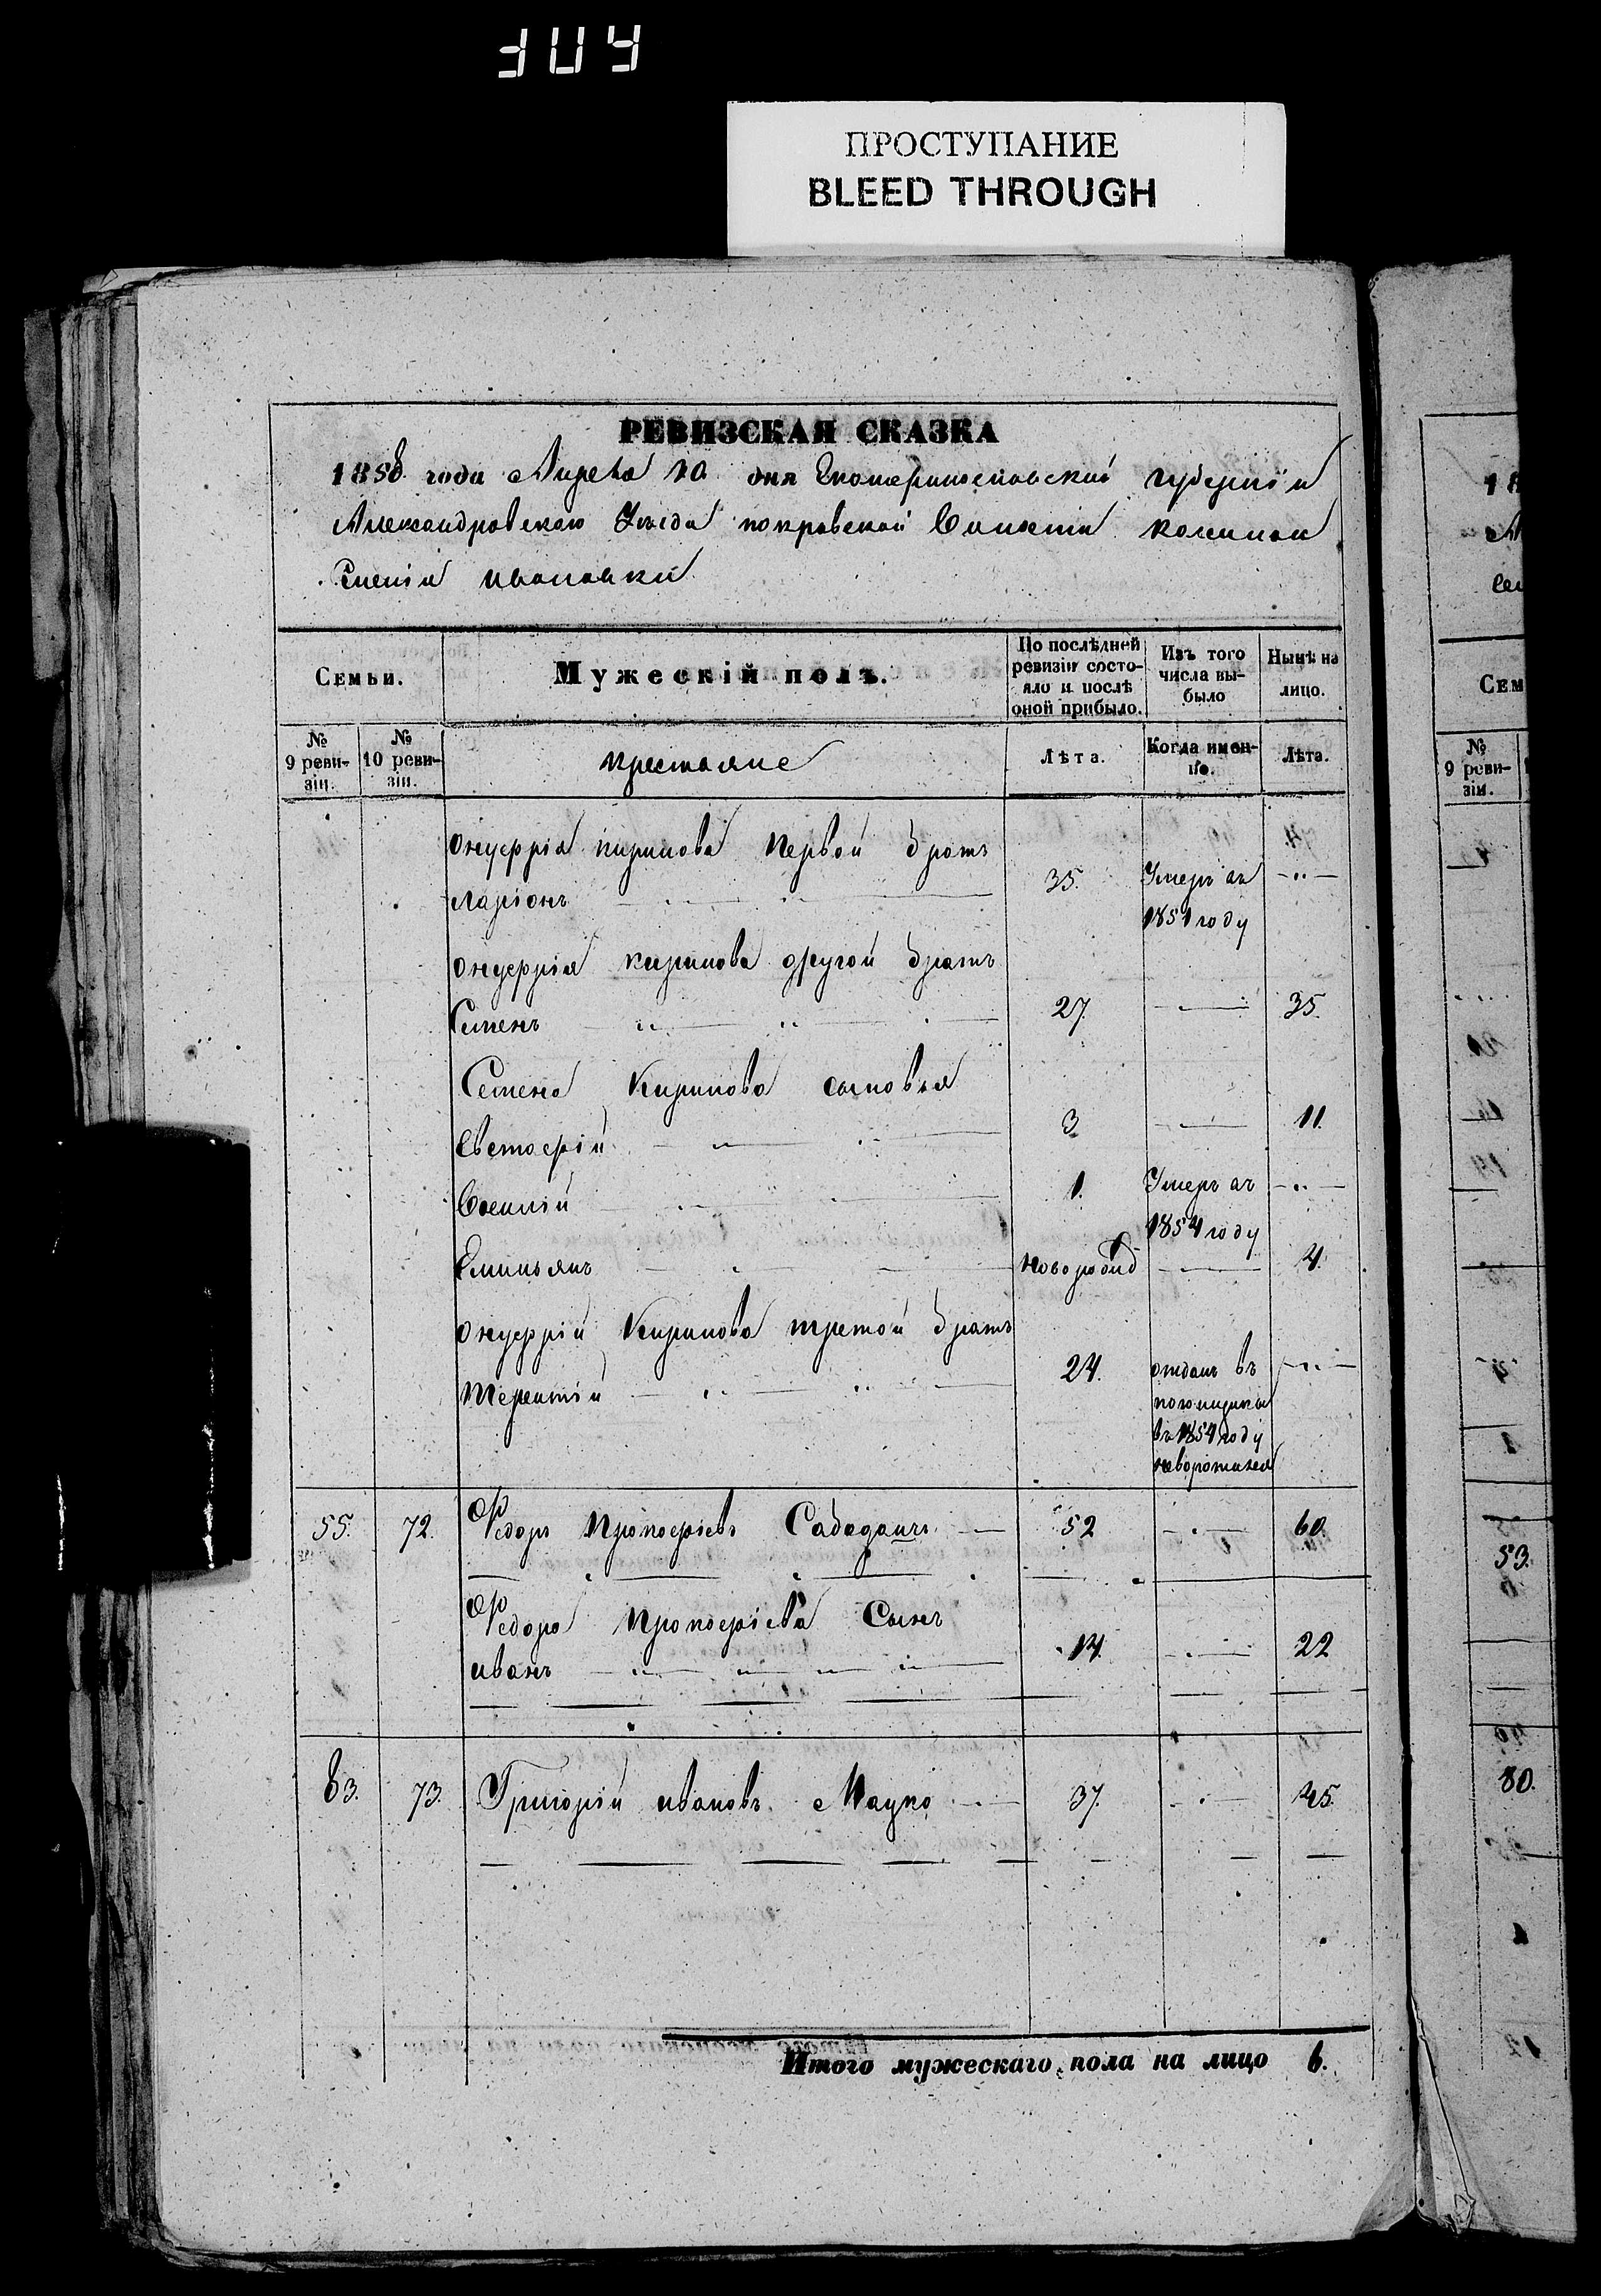 ПРОСТУПАНИЕ
BLEED THROUGH
РЕВИЗСКАЯ СКАЗКА
1858 года Апреля 10 дня Екатеринославской губернии
Александровскаго Уезда покровской волости казенной
Селенія ивановки
Семьи.
Мужескій полъ.
По послѣдней ревизіи состояло и послѣ оной прибыло.
Изъ того числа выбыло
Нынѣ на лицо.
№ 9 ревизіи.
№ 10 ревизіи.
крестьяне
Лѣта.
Когда именно.
Лѣта.
Онуфрія кирилова первой братъ
Ларіонъ 35. Умеръ въ
1851 году
Онуфрія кирилова другой братъ
Семенъ 27. 35.
Семена Кирилова сыновья
Евстафій 3 11.
1. Умеръ въ
1854 году
Емильянъ новорожд 4.
Онуфрій Кирилова третой братъ
Терентій 24. отданъ въ
в 1854 году
55. 72. Федоръ Прокофіевъ 52 60.
Федора Прокофіева Сынъ
иванъ 14. 22
83. 73. Григорій ивановъ 37. 45.
Итого мужескаго пола на лицо 6.
18
Сем
№
9 реви-
зіи.
53.
80.